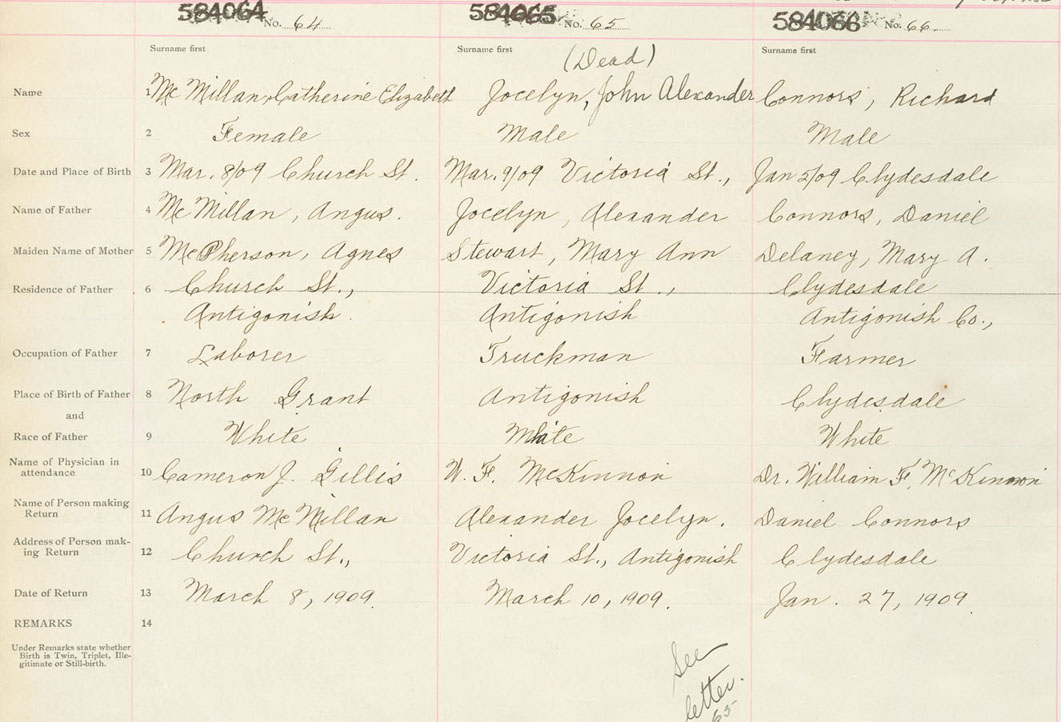 584064 No. 64 584065 No. 65 584066 No. 66
Surname first Surname first Surname first
(Dead)
Name 1 Mc Millan, Catherine Elizabeth Jocelyn, John Alexander Connors, Richard
Sex 2 Female Male Male
Date and Place of Birth 3 Mar. 8/09 Church St. Mar. 9/09 Victoria St., Jan 2/09 Clydesdale
Name of Father 4 Mc Millan, Angus. Jocelyn, Alexander Connors, Daniel
Maiden Name of Mother 5 McPherson, Agnes Stewart, Mary Ann Delaney, Mary A.
Residence of Father 6 Church St., Victoria St., Clydesdale
Antigonish. Antigonish Antigonish Co.,
Occupation of Father 7 Laborer Truckman Farmer
Place of Birth of Father 8 North Grant Antigonish Clydesdale
and
Race of Father 9 White White White
Name of Physician in
attendance 10 Cameron J. Gillis W. F. McKinnon Dr. William F. McKinnon
Name of Person making
Return 11 Angus McMillan Alexander Jocelyn. Daniel Connors
Address of Person mak-
ing Return 12 Church St., Victoria St., Antigonish Clydesdale
Date of Return 13 March 8, 1909. March 10, 1909. Jan. 27, 1909.
REMARKS 14
Under Remarks state whether
Birth is Twin, Triplet, Ille-
gitimate or Still-birth.
See
letter.
65